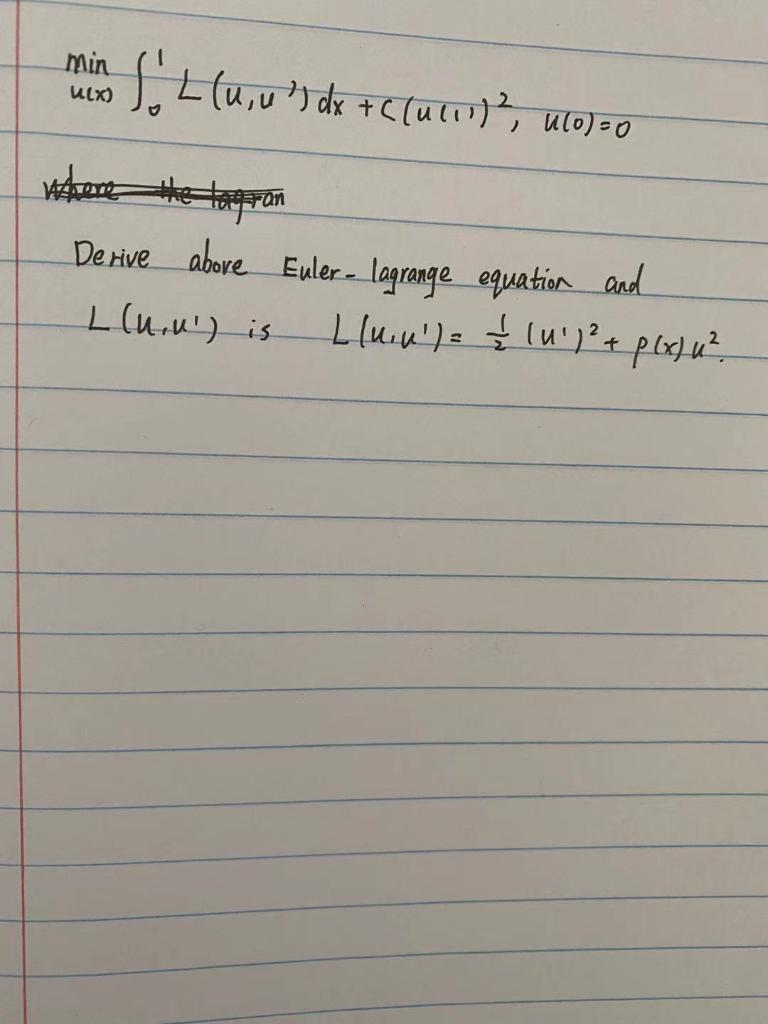 min ∫₀¹ L(u,u')dx + C(u(1))², u(0)=0
u(x)
where the lagran
Derive above Euler-lagrange equation and
L(u,u') is L(u,u')= 1/2 (u')² + p(x)u².